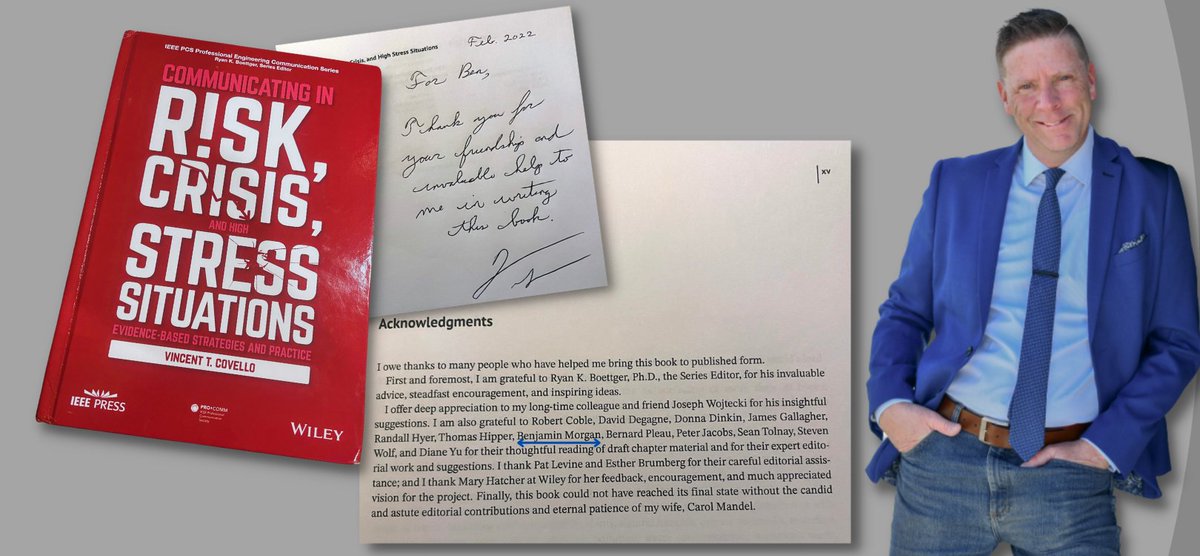 IEEE PCS Professional Engineering Communication Series
Ryan K. Boettger, Series Editor
COMMUNICATING IN
R!SK,
CRISIS,
AND HIGH
STRESS
SITUATIONS
EVIDENCE-BASED STRATEGIES AND PRACTICE
VINCENT T. COVELLO
IEEE PRESS
PRO COMM
WILEY
Crisis, and High Stress Situations
Feb. 2022
For Ben,
Thank you for
your friendship and
invaluable help to
me in writing
this book.
xv
Acknowledgments
I owe thanks to many people who have helped me bring this book to published form.
First and foremost, I am grateful to Ryan K. Boettger, Ph.D., the Series Editor, for his invaluable
advice, steadfast encouragement, and inspiring ideas.
I offer deep appreciation to my long-time colleague and friend Joseph Wojtecki for his insightful
suggestions. I am also grateful to Robert Coble, David Degagne, Donna Dinkin, James Gallagher,
Randall Hyer, Thomas Hipper, Benjamin Morgan, Bernard Pleau, Peter Jacobs, Sean Tolnay, Steven
Wolf, and Diane Yu for their thoughtful reading of draft chapter material and for their expert edito-
rial work and suggestions. I thank Pat Levine and Esther Brumberg for their careful editorial assis-
tance; and I thank Mary Hatcher at Wiley for her feedback, encouragement, and much appreciated
vision for the project. Finally, this book could not have reached its final state without the candid
and astute editorial contributions and eternal patience of my wife, Carol Mandel.